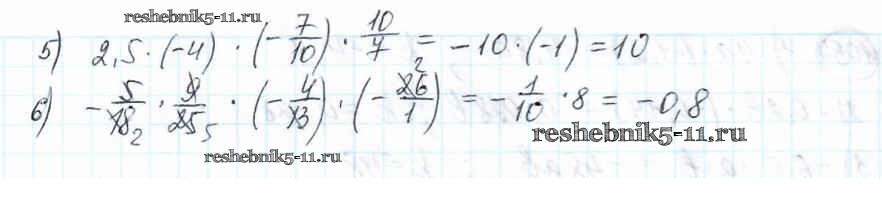 reshebnik5-11.ru
5) 2,5 · (-4) · (-7/10) · 10/7 = -10 · (-1) = 10
6) -5/18 2 · 9/25 5 · (-4/13) · (-26/1) 2 = -1/10 · 8 = -0,8
reshebnik5-11.ru
reshebnik5-11.ru